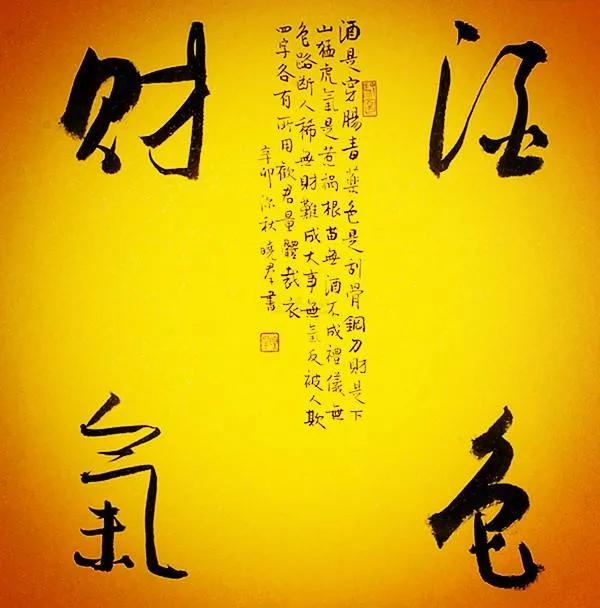 酒
色
財
氣
酒是穿腸毒藥色是刮骨鋼刀財是下
山猛虎氣是惹禍根苗無酒不成禮儀無
色路斷人稀無財難成大事無氣反被人欺
四字各有所用勸君量體裁衣
辛卯深秋曉群書